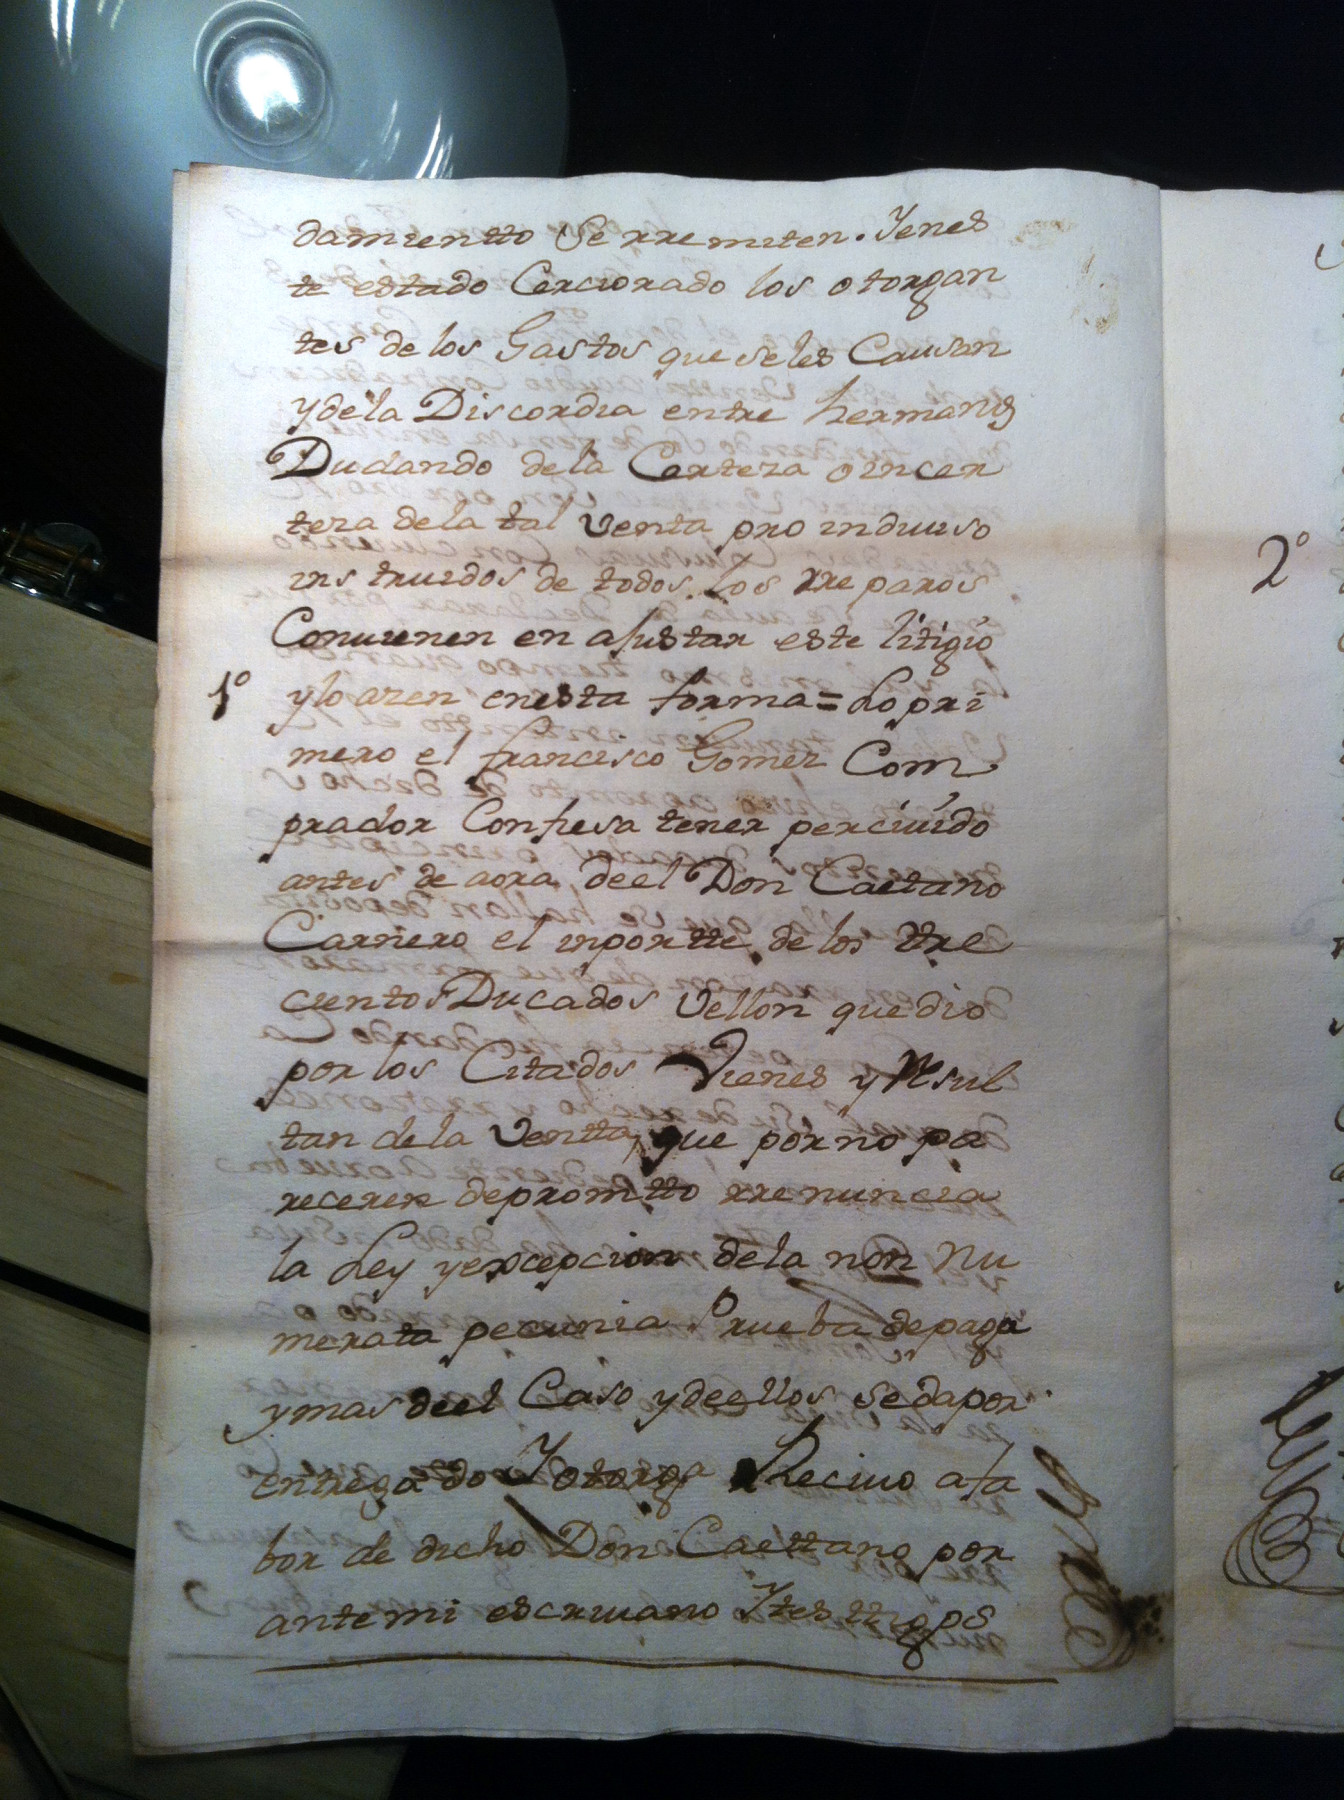 damientto Se rremiten. Yenes
te estado Cerciorado los otorgan
tes de los Gastos que seles Causan
y dela Discordia entre hermanos
Dudando dela Certeza o incer
teza dela tal Venta pro indiuiso
instruidos de todos los rreparos
Conuienen en ajustar este litigio
1º
y lo azen enesta forma = Lo pri
mero el francisco Gomez Com
prador Confiesa tener perciuido
antes de aora, de el Don Caetano
Carnero el inportte de los ttre
cientos Ducados Vellon que dio
por los Citados Vienes y Resul
tan dela Ventta, que por no pa
recerer depromtto rrenuncia
la Ley y excepcion dela non Nu
merata pecunia Prueba de paga
y mas de el Caso y de ellos se da por
entregado Y otorga Reciuo a fa
bor de dicho Don Caettano por
ante mi escriuano Y testtigos
2º